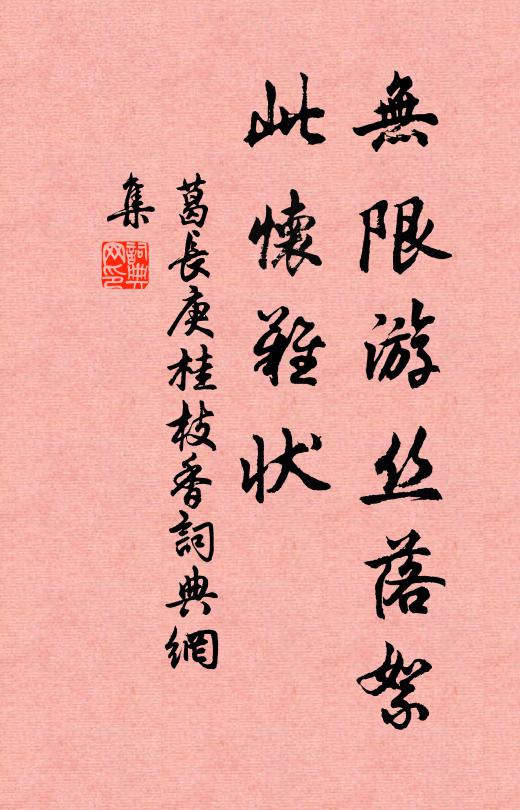 無限游丝落絮
此懷難状
葛長庚桂枝香詞典網
集
詞典网印